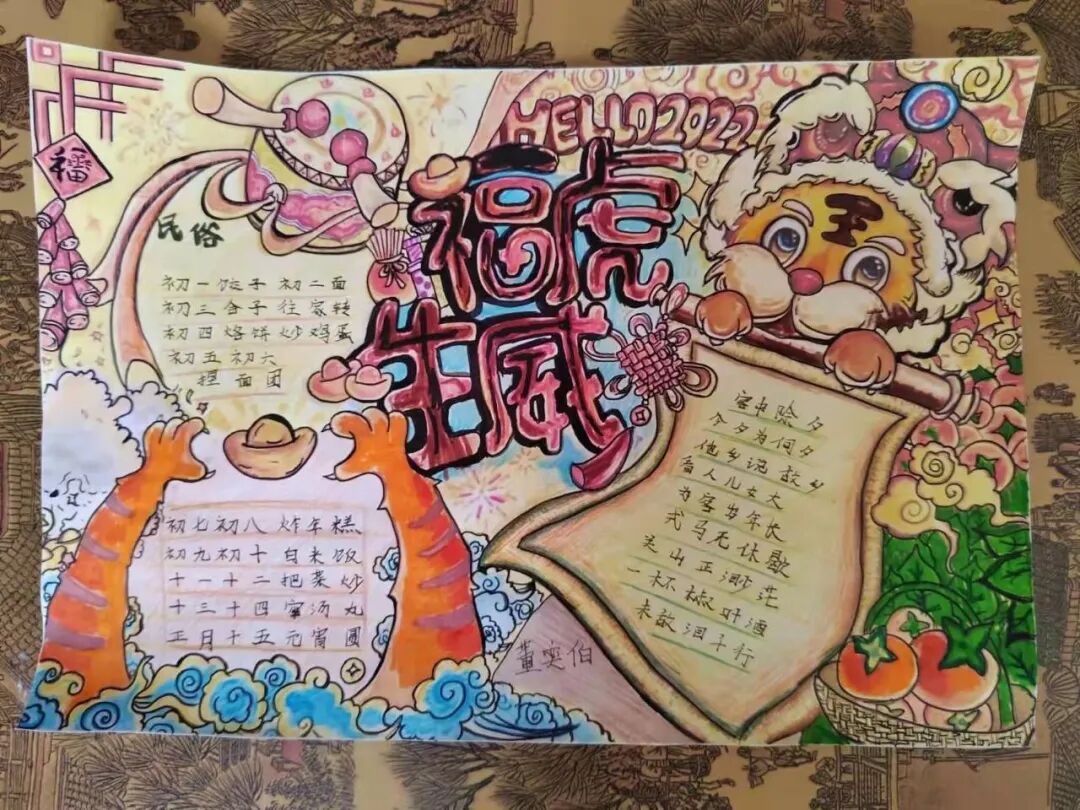 HELLO 2022
福
福虎
生威
民俗
初一饺子初二面
初三合子往家转
初四烙饼炒鸡蛋
初五初六
捏面团
初七初八炸年糕
初九初十白米饭
十一十二把菜炒
十三十四汤丸
正月十五元宵圆
客中除夕
今夕为何夕
他乡说故乡
看人儿女大
为客岁年长
戎马无休歇
关山正渺茫
一杯椒叶酒
未敌泪千行
董奕伯